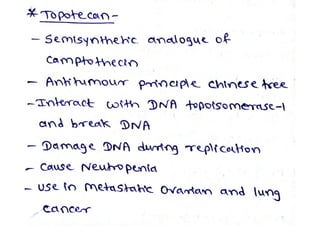 * Topotecan-
- Semisynthetic analogue of
camptothecin
- Antitumour principle chinese tree
- Interact with DNA topoisomerase-1
and break DNA
- Damage DNA during replication
- cause Neutropenia
- use in metastatic ovarian and lung
cancer